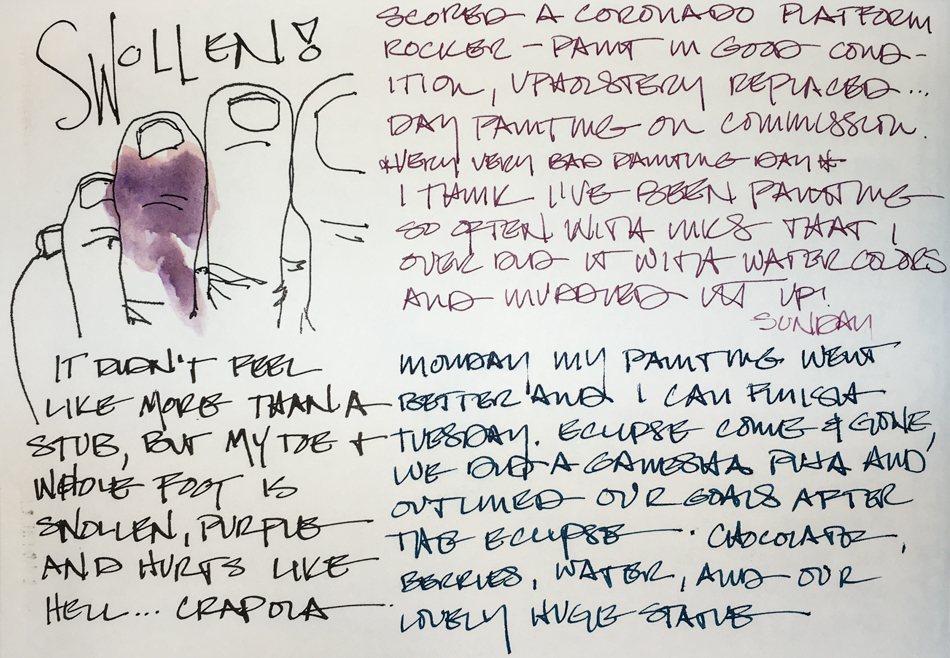 SWOLLEN!
IT DIDN'T FEEL
LIKE MORE THAN A
STUB, BUT MY TOE +
WHOLE FOOT IS
SWOLLEN, PURPLE
AND HURTS LIKE
HELL... CRAPOLA
SCORED A CORONADO PLATFORM
ROCKER - PAINT IN GOOD COND-
ITION, UPHOLSTERY REPLACED...
DAY PAINTING ON COMMISSION.
*VERY VERY BAD PAINTING DAY*
I THINK I'VE BEEN PAINTING
SO OFTEN WITH INKS THAT I
OVER DID IT WITH WATERCOLORS
AND MUDDIED IT UP!
SUNDAY
MONDAY MY PAINTING WENT
BETTER AND I CAN FINISH
TUESDAY. ECLIPSE COME & GONE,
WE DID A GANESHA PUJA AND
OUTLINED OUR GOALS AFTER
THE ECLIPSE. CHOCOLATE,
BERRIES, WATER, AND OUR
LOVELY HUGE STATUE